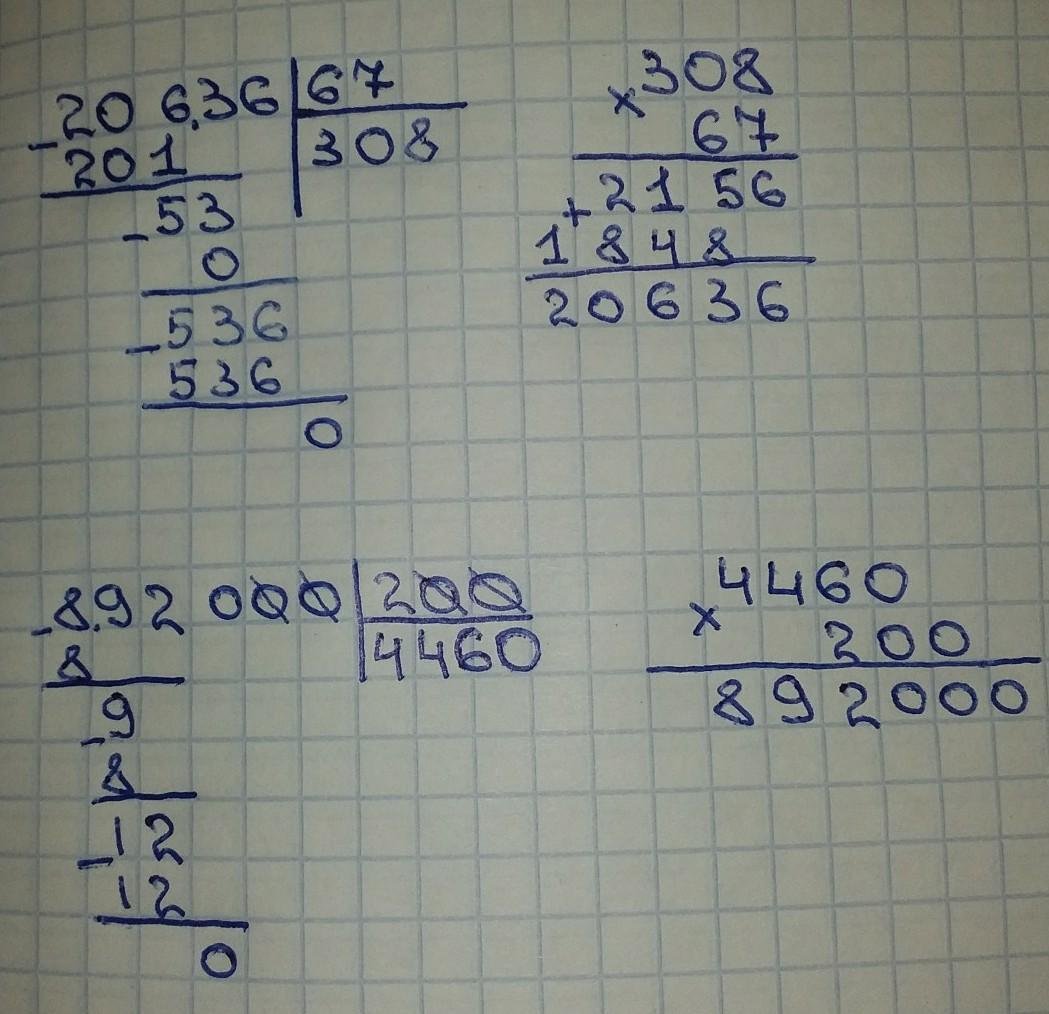 - 20 6.36 | 67
201 | 308
- 53
0
- 536
536
0
× 308
67
+ 2156
1848
20636
- 8.92 000 | 200
8 | 4460
- 9
8
- 12
12
0
× 4460
200
892000